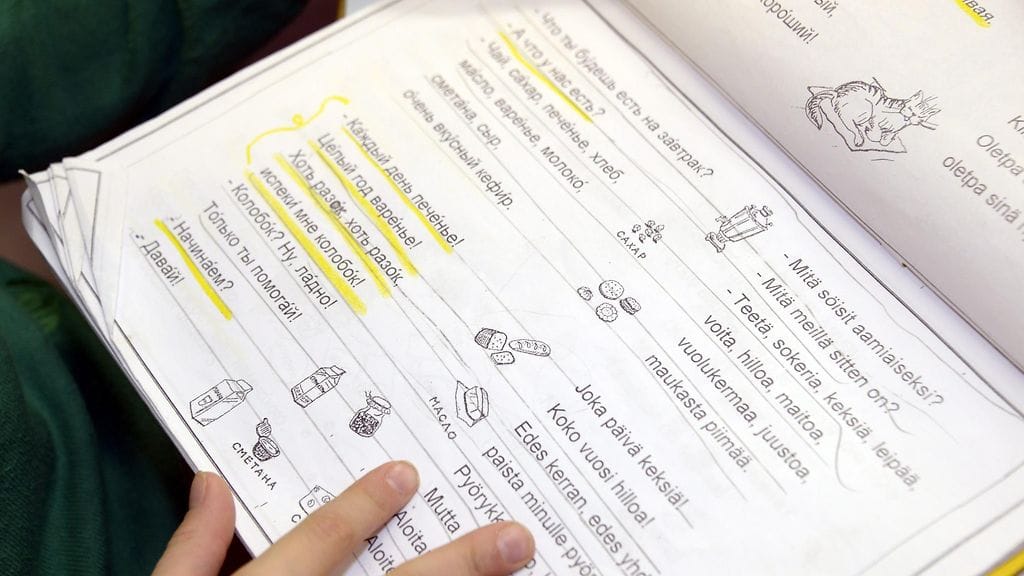 - Что ты будешь есть на завтрак?
- А что у нас есть?
- Чай, сахар, печенье, хлеб,
масло, варенье, молоко,
сметана, сыр,
очень вкусный кефир.
- Каждый день печенье!
Целый год варенье!
Хоть разок, хоть разок,
испеки мне колобок!
- Колобок? Ну, ладно!
Только ты помогай!
- Начинаем?
- Давай!
САХАР
МАСЛО
СМЕТАНА
- Mitä söisit aamiaiseksi?
- Mitä meillä sitten on?
- Teetä, sokeria, keksiä, leipää,
voita, hilloa, maitoa,
vuolukermaa, juustoa,
maukasta piimää.
Joka päivä keksiä!
Koko vuosi hilloa!
Edes kerran, edes
paista minulle
Mutta
Oletpa
oletpa sinä